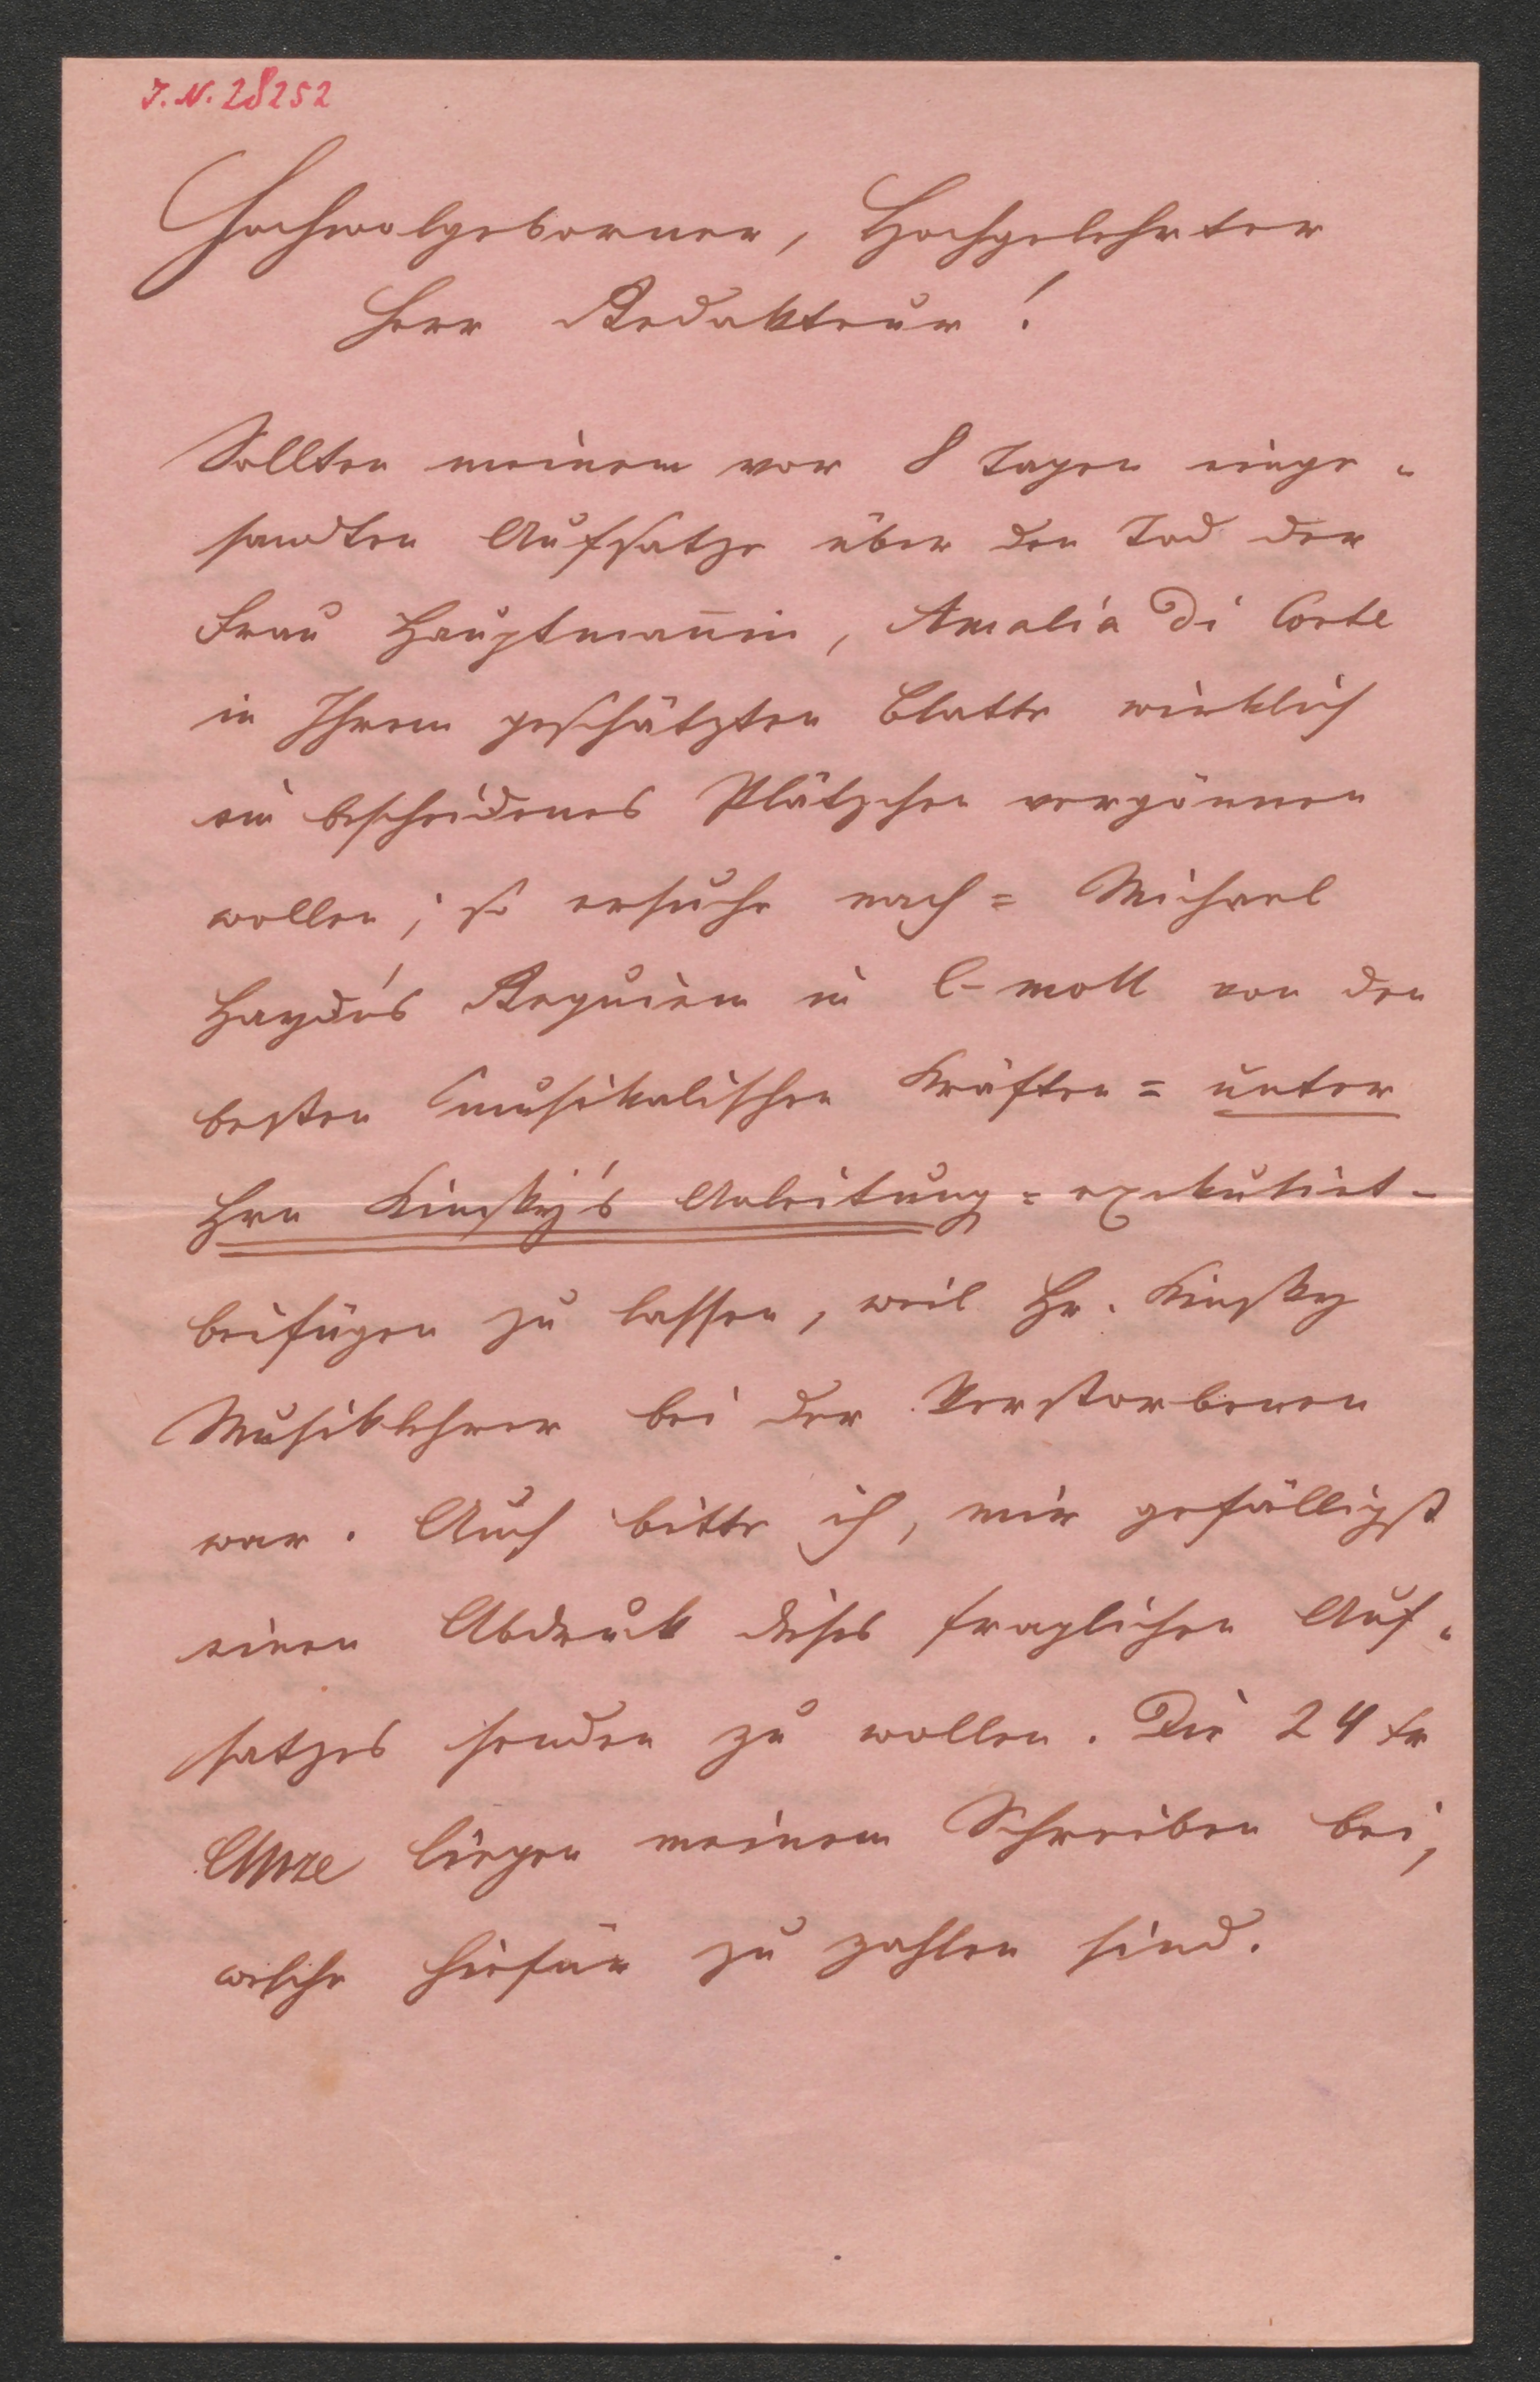 I. N. 28252
Hochwolgeborner, Hochgelehrter
Herr Redakteur!
Sollten meinem vor 8 Tagen einge-
sandten Aufsatze über den Tod der
Frau Hauptmannin, Amalia Di Corte
in Ihrem geschätzten Blatte wirklich
ein bescheidenes Plätzchen vergönnen
wollen; so ersuche nach = Michael
Haydn's Requiem in C-moll von den
besten musikalischen Kräften = unter
Hrn Kinsky's Anleitung = exekutirt -
beifügen zu lassen, weil Hr. Kinsky
Musiklehrer bei der Verstorbenen
war. Auch bitte ich, mir gefälligst
einen Abdruk dieses fraglichen Auf-
satzes senden zu wollen. Die 24 kr
CMze liegen meinem Schreiben bei,
welche hiefür zu zahlen sind.